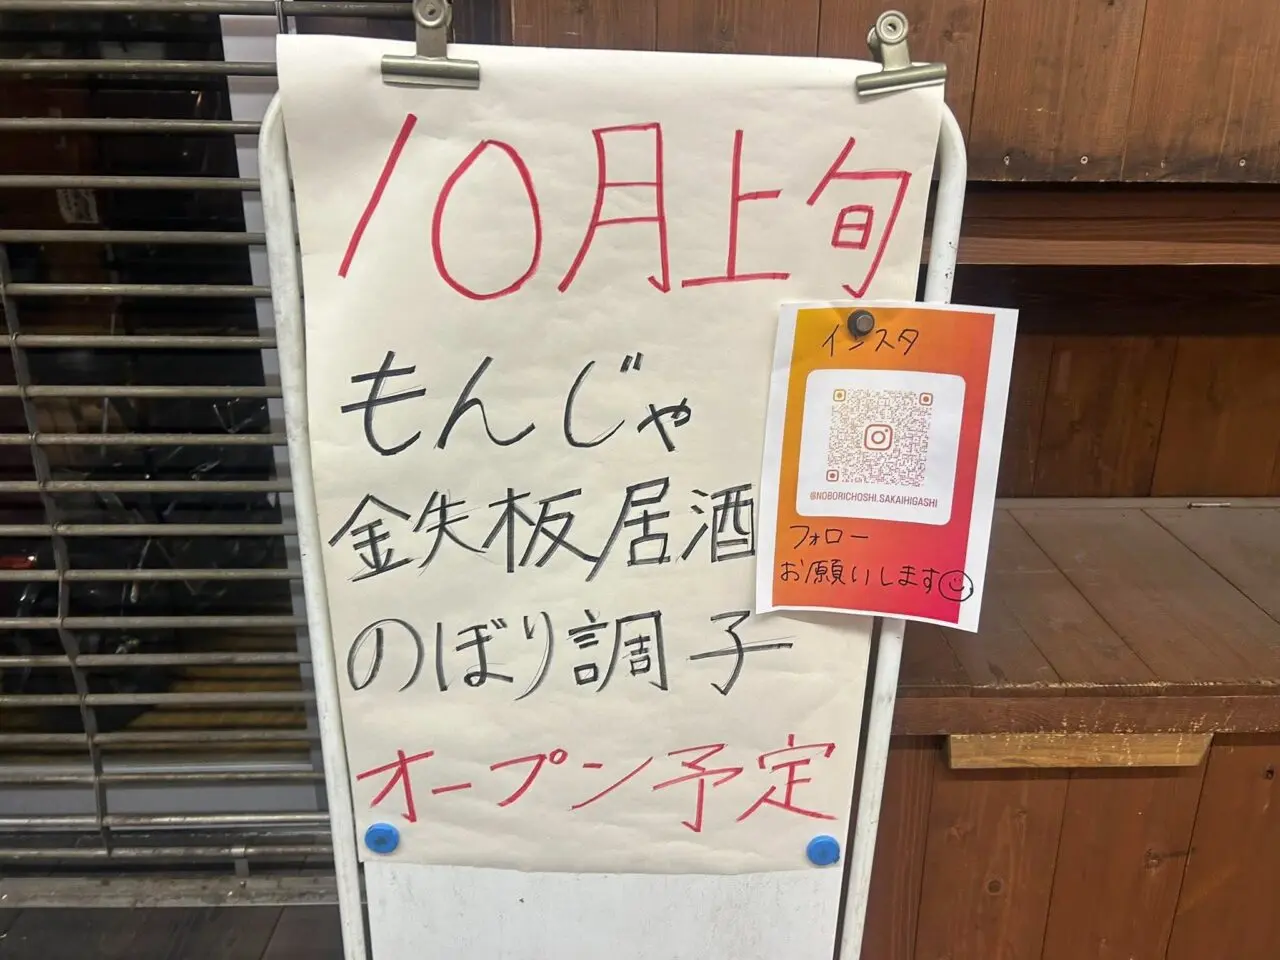 10月上旬
もんじゃ
鉄板居酒
のぼり調子
オープン予定
インスタ
@NOBORICHOSHI.SAKAIHIGASHI
フォロー
お願いします